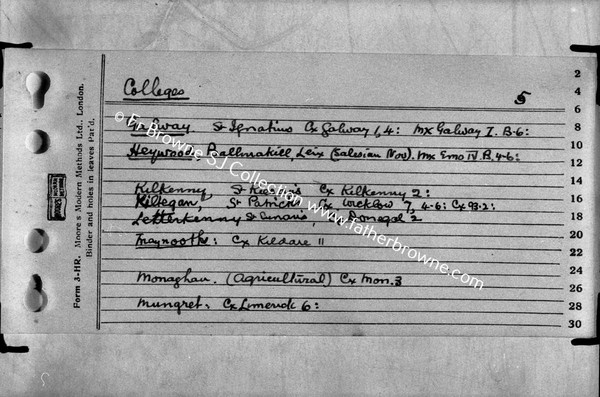 Colleges
5
Galway. St Ignatius Cx Galway 1,4: Mx Galway I. B-6:
Heywood, Ballinakill, Leix (Salesian Nov). Mx Emo IV. B, 4-6:
Kilkenny St Kieran's Cx Kilkenny 2:
Kiltegan St Patrick's Cx Wicklow 7, 4-6: Cx 93.2:
Letterkenny St Eunan's, Donegal 2
Maynooth: Cx Kildare 11
Monaghan. (Agricultural) Cx Mon. 3
Mungret. Cx Limerick 6:
Form 3-HR. Moore's Modern Methods Ltd., London.
Binder and holes in leaves Pat'd.
2
4
6
8
10
12
14
16
18
20
22
24
26
28
30
© Fr Browne SJ Collection www.fatherbrowne.com